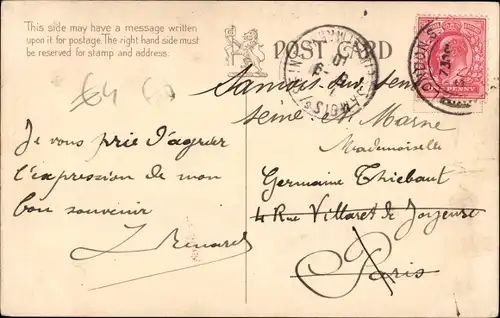 This side may have a message written
upon it for postage. The right hand side must
be reserved for stamp and address.
POST CARD
LONDON. S
PENNY
64
Samois sur Seine
Seine et Marne
Mademoiselle
Germaine Thiebaut
4 Rue Villaret de Joyeuse
Paris
Je vous prie d'agréer
l'expression de mon
bon souvenir
Renard